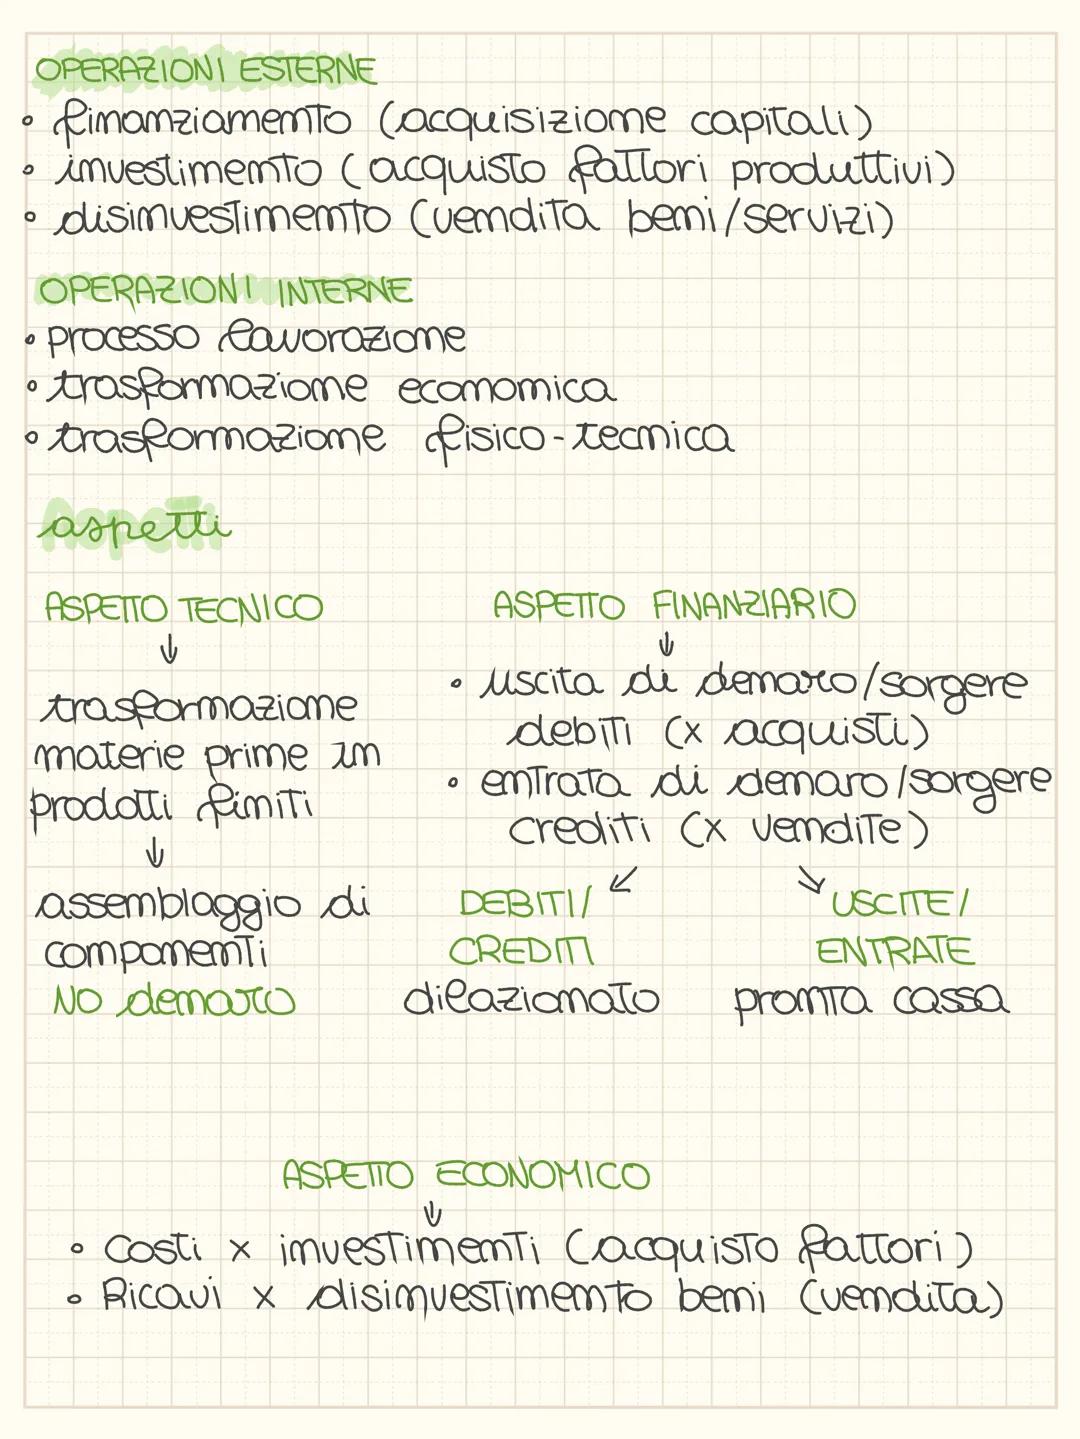 OPERAZIONI ESTERNE
• finanziamento (acquisizione capitali)
• investimento (acquisto fattori produttivi)
• disinvestimento (vendita beni/servizi)
OPERAZIONI INTERNE
• processo lavorazione
• trasformazione economica
• trasformazione fisico-tecnica
aspetti
ASPETTO TECNICO
↓
trasformazione
materie prime in
prodotti finiti
↓
assemblaggio di
componenti
NO denaro
ASPETTO FINANZIARIO
↓
• uscita di denaro/sorgere
debiti (x acquisti)
• entrata di denaro/sorgere
crediti (x vendite)
↙ ↘
DEBITI/
CREDITI
dilazionato
USCITE/
ENTRATE
pronta cassa
ASPETTO ECONOMICO
↓
• Costi x investimenti (acquisto fattori)
• Ricavi x disinvestimento beni (vendita)